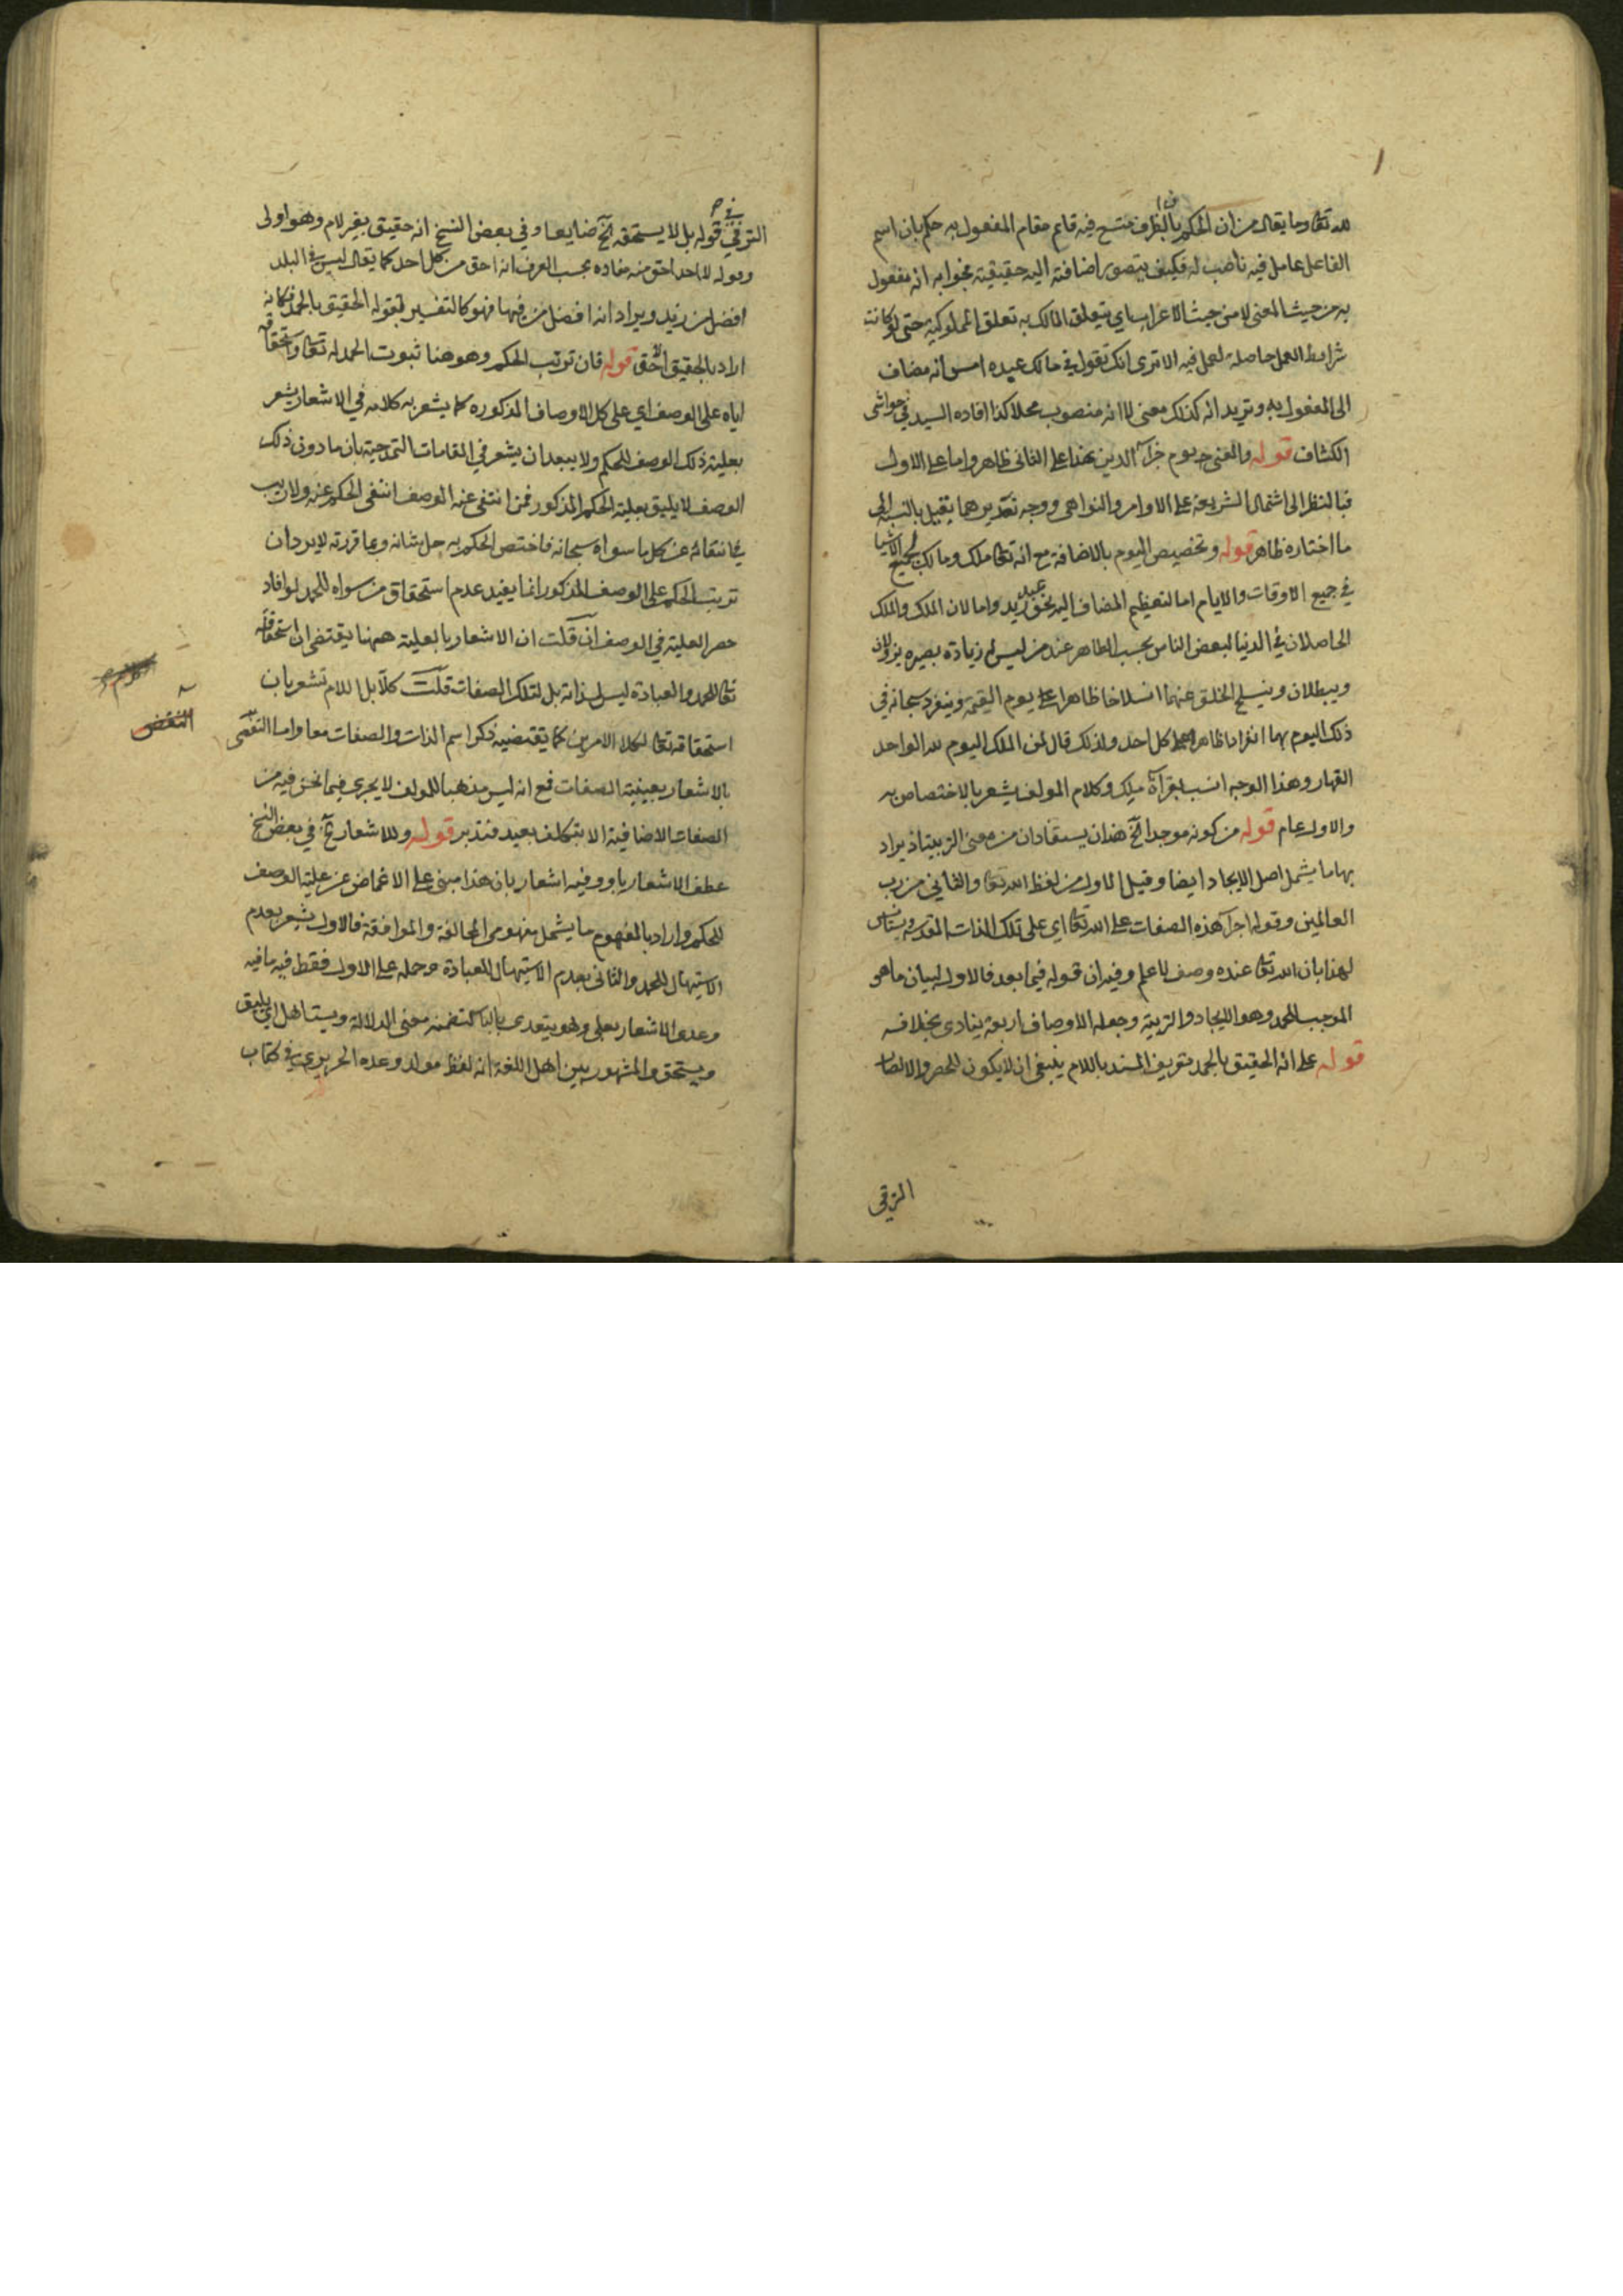 لله تعالى وما يقال من ان الحكم بان الظرف متسع فيه قايم مقام المفعول به حكم بان اسم
الفاعل عامل فيه ناصب له فكيف يتصور اضافته اليه حقيقية فجوابه انه مفعول
به من حيث المعنى لا من حيث الاعراب اي يتعلق المالك به تعلق المملوكية حتى لو كانت
شرايط العمل حاصلة لعمل فيه الا ترى انك تقول في مالك عبده امس انه مضاف
الى المفعول به وتريد انه كذلك معنى لا انه منصوب محلا كذا افاده السيد في حواشي
الكشاف قوله والمعنى يوم جزاء الدين هذا على الثاني ظاهر واما على الاول
فبالنظر الى اشتمال الشريعة على الاوامر والنواهي ووجه تقديرهما يقبل بالنسبة الى
ما اختاره ظاهر قوله وتخصيص اليوم بالاضافة مع انه تعالى ملك ومالك لجميع الاشيا
في جميع الاوقات والايام اما لتعظيم المضاف اليه نحو عبيد زيد واما لان الملك والملك
الحاصلان في الدنيا لبعض الناس بحسب الظاهر عند من ليس له زيادة بصيره يزولان
ويبطلان وينسلخ الخلق عنهما انسلاخا ظاهرا على يوم القيمة وينفرد سبحانه في
ذلك اليوم بهما انفرادا ظاهرا على كل احد ولذلك قال لمن الملك اليوم لله الواحد
القهار وهذا الوجه انسب بقرآة ملك وكلام المولف يشعر بالاختصاص به
والاول عام قوله من كونه موجدا الخ هذان يستفادان من معنى التربية اذ يراد
بها ما يشمل اصل الايجاد ايضا وقيل الاول من لفظ الله تعالى والثاني من رب
العالمين وقوله اجرآ هذه الصفات على الله تعالى اي على تلك الذات المقدسة ويستانس
لهذا بان الله تعالى عنده وصف لا علم وفيه ان قوله فيما بعد فالاول لبيان ما هو
الموجب للحمد وهو الايجاد والتربية وجعله الاوصاف اربعة ينادي بخلافه
قوله على انه الحقيق بالحمد تعريف المسند باللام ينبغي ان لا يكون للحصر والا لصار
الترقي
الترقي في قوله بل لا يستحقه الخ ضايعا وفي بعض النسخ انه حقيق بغير لام وهو اولى
وقوله لا احد احق منه مفاده بحسب العرف انه احق من كل احد كما يقال ليس في البلد
افضل من زيد ويراد انه افضل من فيها فهو كالتفسير لقوله الحقيق بالحمد فكانه
اراد بالحقيق الاحق قوله فان ترتب الحكم وهو هنا ثبوت الحمد له تعالى واستحقاقه
اياه على الوصف اي على كل الاوصاف المذكوره كما يشعر به كلامه في الاشعار يشعر
بعلية ذلك الوصف للحكم ولا يبعد ان يشعر في المقامات التمدحية بان ما دون ذلك
الوصف لا يليق بعلية الحكم المذكور فمن انتفى عنه الوصف انتفى الحكم عنه ولا ريب
في انتفائه عن كل ما سواه سبحانه فاختص الحكم به جل شانه وبما قررته لا يرد ان
ترتب الحكم على الوصف المذكور انما يفيد عدم استحقاق من سواه للحمد لو افاد
حصر العلية في الوصف ان قلت ان الاشعار بالعلية ههنا يقتضي ان استحقاقه
تعالى للحمد والعبادة ليس لذاته بل لتلك الصفات قلت كلا بل اللام تشعر بان
استحقاقه تعالى لكلا الامرين كما يقتضيه ذكر اسم الذات والصفات معا واما النقض
النقض
بالاشعار بعينية الصفات فمع انه ليس مذهبا للمولف لا يجري فيما نحن فيه من
الصفات الاضافية الا بتكلف بعيد فتدبر قوله وللاشعار الخ في بعض النسخ
عطف الاشعار باو وفيه اشعار بان هذا مبني على الاغماض عن علية الوصف
للحكم واراد بالمفهوم ما يشمل مفهومي المخالفة والموافقة فالاول يشعر بعدم
الاستيهال للحمد والثاني بعدم الاستيهال للعبادة وحمله على الاول فقط فيه ما فيه
وعدى الاشعار بعلى وهو يتعدى بالبا لتضمنه معنى الدلالة ويستاهل اي يليق
ويستحق والمشهور بين اهل اللغة انه لفظ مولد وعده الحريري في كتاب